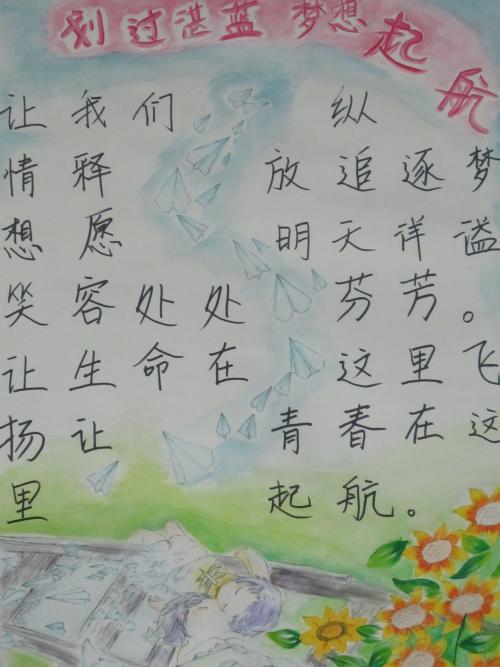 划过湛蓝 梦想起航
让我们 纵
情释 放追逐梦
想愿 明天详谧
笑容处处 芬芳。
让生命在 这里飞
扬让 青春在这
里 起航。